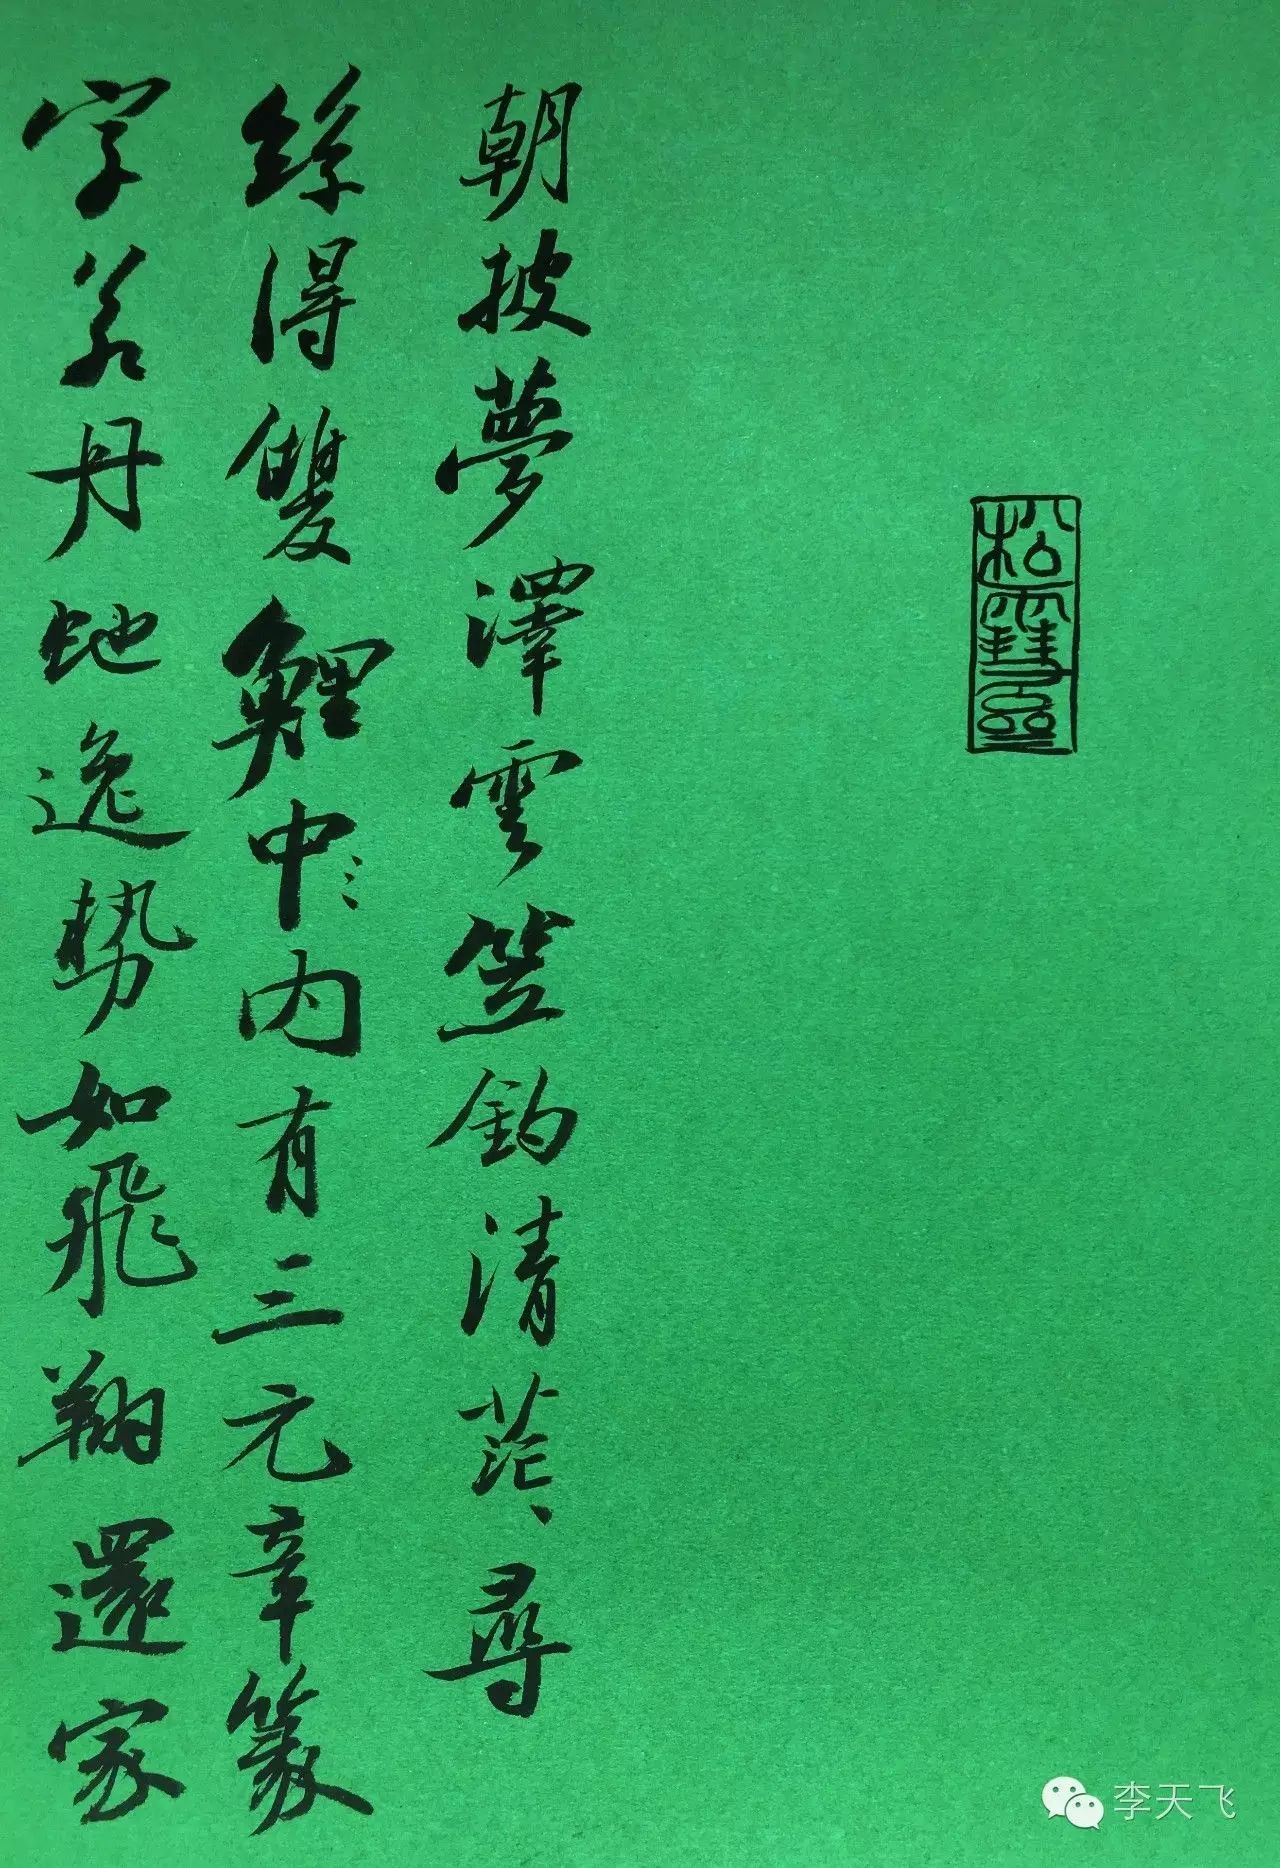 松雪
朝披夢澤雲笠釣清茫〻尋
絲得雙鯉中内有三元章篆
字若丹虵逸势如飛翔還家
李天飞